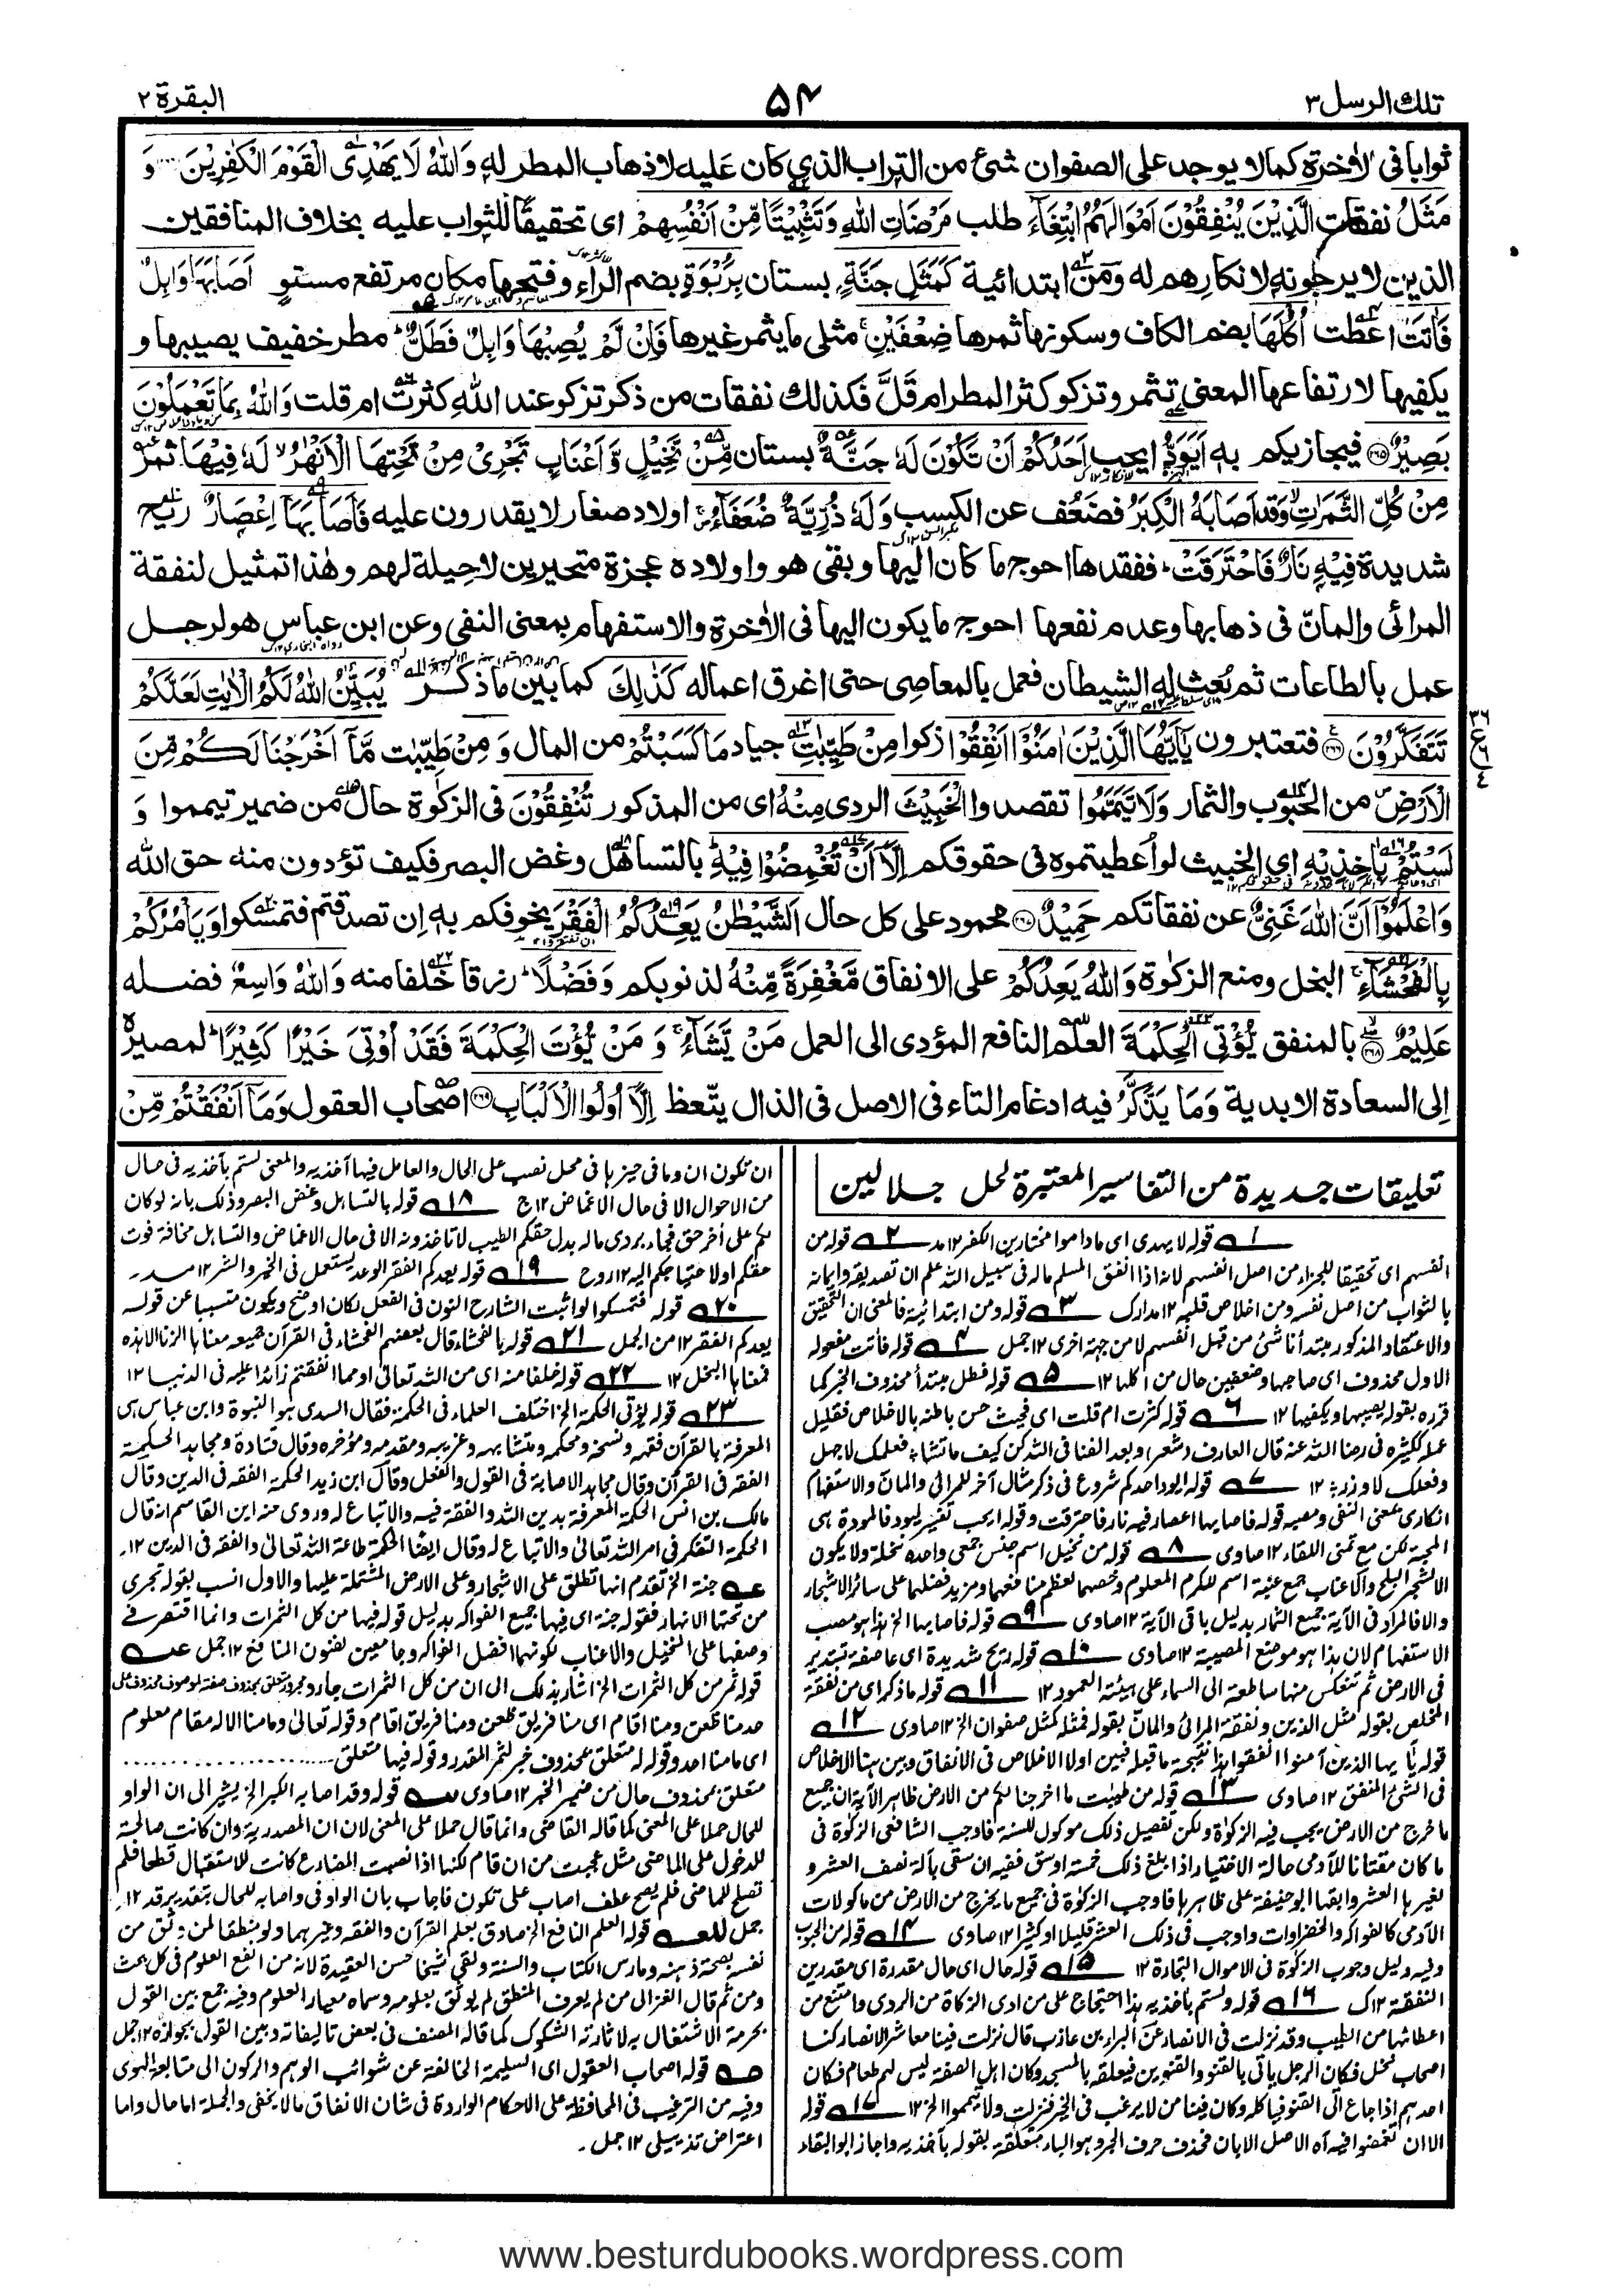 تلك الرسل ٣
۵۴
البقرة ٢
ثوابا فى الاٰخرة كما لا يوجد على الصفوان شئ من التراب الذى كان عليه لاذهاب المطر له وَاللهُ لَا يَهْدِى الْقَوْمَ الْكٰفِرِيْنَ وَ
مَثَلُ نفقات الَّذِيْنَ يُنْفِقُوْنَ اَمْوَالَهُمُ ابْتِغَآءَ طلب مَرْضَاتِ اللهِ وَتَثْبِيْتًا مِّنْ اَنْفُسِهِمْ اى تحقيقًا للثواب عليه بخلاف المنافقين
الذين لا يرجونه لانكارهم له ومن ابتدائية كَمَثَلِ جَنَّةٍ بستان بِرَبْوَةٍ بضم الراء وفتحها مكان مرتفع مستوٍ اَصَابَهَا وَابِلٌ
فَاٰتَتْ اعطت اُكُلَهَا بضم الكاف وسكونها ثمرها ضِعْفَيْنِ مثلى ما يثمر غيرها فَاِنْ لَّمْ يُصِبْهَا وَابِلٌ فَطَلٌّ مطر خفيف يصيبها و
يكفيها لارتفاعها المعنى تثمر وتزكو كثر المطر ام قلَّ فكذلك نفقات من ذكر تزكو عند الله كثرت ام قلت وَاللهُ بِمَا تَعْمَلُوْنَ
بَصِيْرٌ ۝۲۶۵ فيجازيكم به اَيَوَدُّ ايحب اَحَدُكُمْ اَنْ تَكُوْنَ لَهٗ جَنَّةٌ بستان مِّنْ نَّخِيْلٍ وَّاَعْنَابٍ تَجْرِىْ مِنْ تَحْتِهَا الْاَنْهٰرُ لَهٗ فِيْهَا ثمر
مِنْ كُلِّ الثَّمَرٰتِ وَقد اَصَابَهُ الْكِبَرُ فضعُف عن الكسب وَلَهٗ ذُرِّيَّةٌ ضُعَفَآءُ اولاد صغار لا يقدرون عليه فَاَصَابَهَآ اِعْصَارٌ ريح
شديدة فِيْهِ نَارٌ فَاحْتَرَقَتْ ففقدها احوج ما كان اليها وبقى هو واولاده عجزة متحيرين لاحيلة لهم وهٰذا تمثيل لنفقة
المرائى والمانّ فى ذهابها وعدم نفعها احوج ما يكون اليها فى الاٰخرة والاستفهام بمعنى النفى وعن ابن عباس هو لرجل
عمل بالطاعات ثم بُعث له الشيطان فعمل بالمعاصى حتى اغرق اعماله كَذٰلِكَ كما بين ما ذكر يُبَيِّنُ اللهُ لَكُمُ الْاٰيٰتِ لَعَلَّكُمْ
تَتَفَكَّرُوْنَ ۝۲۶۶ فتعتبرون يٰٓاَيُّهَا الَّذِيْنَ اٰمَنُوْٓا اَنْفِقُوْا زكوا مِنْ طَيِّبٰتِ جياد مَا كَسَبْتُمْ من المال وَ مِنْ طَيِّبٰت مَّآ اَخْرَجْنَا لَكُمْ مِّنَ
الْاَرْضِ من الحبوب والثمار وَلَا تَيَمَّمُوا تقصدوا الْخَبِيْثَ الردى مِنْهُ اى من المذكور تُنْفِقُوْنَ فى الزكوٰة حال من ضمير تيمموا وَ
لَسْتُمْ بِاٰخِذِيْهِ اى الخبيث لو اُعطيتموه فى حقوقكم اِلَّآ اَنْ تُغْمِضُوْا فِيْهِ بالتساهل وغض البصر فكيف تؤدون منه حق الله
وَاعْلَمُوْٓا اَنَّ اللهَ غَنِىٌّ عن نفقاتكم حَمِيْدٌ ۝۲۶۷ محمود على كل حال اَلشَّيْطٰنُ يَعِدُكُمُ الْفَقْرَ يخوفكم به اِن تصدقتم فتمسكوا وَيَأْمُرُكُمْ
بِالْفَحْشَآءِ البخل ومنع الزكوٰة وَاللهُ يَعِدُكُمْ على الانفاق مَّغْفِرَةً مِّنْهُ لذنوبكم وَفَضْلًا رزقا خلفا منه وَاللهُ وَاسِعٌ فضله
عَلِيْمٌ ۝۲۶۸ بالمنفق يُّؤْتِى الْحِكْمَةَ العلم النافع المؤدى الى العمل مَنْ يَّشَآءُ وَ مَنْ يُّؤْتَ الْحِكْمَةَ فَقَدْ اُوْتِىَ خَيْرًا كَثِيْرًا لمصيره
اِلى السعادة الابدية وَمَا يَذَّكَّرُ فيه ادغام التاء فى الاصل فى الذال يتّعظ اِلَّآ اُولُوا الْاَلْبَابِ ۝۲۶۹ اصحاب العقول وَمَآ اَنْفَقْتُمْ مِّنْ
تعليقات جديدة من التفاسير المعتبرة لحل جلالين
١ قوله لا يهدى اى ما داموا مختارين الكفر ١٢ مد ٢ قوله من
انفسهم اى تحقيقا للجزاء من اصل انفسهم لانه اذا انفق المسلم ماله فى سبيل الله علم ان تصديقه وايمانه
بالثواب من اصل نفسه ومن اخلاص قلبه ١٢ مدارك ٣ قوله ومن ابتدائية فالمعنى ان التحقيق
والاعتقاد المذكور مبتدأ ناشئ من قبل انفسهم لا من جهة اخرى ١٢ جمل ٤ قوله فاٰتت مفعوله
الاول محذوف اى صاحبها وضعفين حال من اكلها ١٢ ٥ قوله فطل مبتدأ محذوف الخبر كما
قرره بقوله يصيبها ويكفيها ١٢ ٦ قوله كثرت ام قلت اى فحيث حسن باطنه بالاخلاص فقليل
عمله ككثيره فى رضا الله عنه قال العارف (شعر) وبعد الفنا فى الله كن كيف ما تشا؛ فعلمك لا جهل
وفعلك لا وزر؛ ١٢ ٧ قوله ايود احدكم شروع فى ذكر مثال آخر للمرائى والمانّ والاستفهام
انكارى بمعنى النفى ومصبه قوله فاصابها اعصار فيه نار فاحترقت وقوله ايحب تفسير ليود فالمودة هى
المحبة لكن مع تمنى اللقاء ١٢ صاوى ٨ قوله من نخيل اسم جنس جمعى واحده نخلة ولا يكون
الا لشجر البلح والاعناب جمع عنبة اسم للكرم المعلوم وخصهما لعظم منافعهما ومزيد فضلهما على سائر الاشجار
والا فالمراد فى الآية جميع الثمار بدليل باقى الآية ١٢ صاوى ٩ قوله فاصابها الخ هذا هو مصب
الاستفهام لان هذا هو موضع المصيبة ١٢ صاوى ١٠ قوله ريح شديدة اى عاصفة تستدير
فى الارض ثم تنعكس منها ساطعة الى السماء على هيئة العمود ١٢ ١١ قوله ما ذكر اى من نفقة
المخلص بقوله مثل الذين ونفقة المرائى والمانّ بقوله فمثله كمثل صفوان الخ ١٢ صاوى ١٢
قوله يا ايها الذين آمنوا انفقوا هذا نتيجة ما قبله فبين اولا الاخلاص فى الانفاق وبين هنا الاخلاص
فى الشئ المنفق ١٢ صاوى ١٣ قوله من طيبٰت ما اخرجنا لكم من الارض ظاهر الآية ان جميع
ما خرج من الارض يجب فيه الزكوٰة ولكن تفصيل ذلك موكول للسنة فاوجب الشافعى الزكوٰة فى
ما كان مقتاتا للآدمى حالة الاختيار اذا بلغ ذلك خمسة اوسق ففيه ان سقى بآلة نصف العشر و
لغيرها العشر وابقاها ابو حنيفة على ظاهرها فاوجب الزكوٰة فى جميع ما يخرج من الارض من ماكولات
الآدمى كالفواكه والخضراوات واوجب فى ذلك العشر قليلا او كثيرا ١٢ صاوى ١٤ قوله من الحبوب
وفيه دليل وجوب الزكوٰة فى الاموال التجارة ١٢ ١٥ قوله حال اى حال مقدرة اى مقدرين
النفقة ١٢ ك ١٦ قوله ولستم بآخذيه هذا احتجاج على من ادى الزكاة من الردى وامتنع من
اعطائها من الطيب وقد نزلت فى الانصار عن البراء بن عازب قال نزلت فينا معاشر الانصار كنا
اصحاب نخل فكان الرجل ياتى بالقنو والقنوين فيعلقه بالمسجد وكان اهل الصفة ليس لهم طعام فكان
احدهم اذا جاع اتى القنو فياكله وكان فينا من لا يرغب فى الخير فنزلت ولا تيمموا الخ ١٢ ١٧ قوله
الا ان تغمضوا فيه آه الاصل الا بان فحذف حرف الجر وهو الباء متعلقة بقوله بآخذيه واجاز ابو البقاء
ان تكون ان وما فى حيزها فى محل نصب على الحال والعامل فيها آخذيه والمعنى لستم بآخذيه فى حال
من الاحوال الا فى حال الاغماض ١٢ ج ١٨ قوله بالتساهل وغض البصر وذلك بانه لو كان
لكم على آخر حق فجاء بردى ماله بدل حقكم الطيب لا تاخذونه الا فى حال الاغماض والتساهل مخافة فوت
حقكم او لاحتياجكم اليه ١٢ روح ١٩ قوله يعدكم الفقر الوعد يستعمل فى الخير والشر ١٢ مدر
٢٠ قوله فتمسكوا لو اثبت الشارح النون فى الفعل لكان اوضح ويكون متسببا عن قوله
يعدكم الفقر ١٢ من الجمل ٢١ قوله بالفحشاء قال بعضهم الفحشاء فى القرآن جميعه معناها الزنا الا هذه
فمعناها البخل ١٢ ٢٢ قوله خلفا منه اى من الله تعالى او مما انفقتم زائدا عليه فى الدنيا ١٢
٢٣ قوله يؤتى الحكمة الخ اختلف العلماء فى الحكمة فقال السدى هو النبوة وابن عباس هى
المعرفة بالقرآن فقهه ونسخه ومحكمه ومتشابهه وغريبه ومقدمه ومؤخره وقال قتادة ومجاهد الحكمة
الفقه فى القرآن وقال مجاهد الاصابة فى القول والفعل وقال ابن زيد الحكمة الفقه فى الدين وقال
مالك بن انس الحكمة المعرفة بدين الله والفقه فيه والاتباع له وروى عنه ابن القاسم انه قال
الحكمة التفكر فى امر الله تعالى والاتباع له وقال ايضا الحكمة طاعة الله تعالى والفقه فى الدين ١٢
عه جنة الخ تقدم انها تطلق على الاشجار وعلى الارض المشتملة عليها والاول انسب بقوله تجرى
من تحتها الانهار فقوله جنة اى فيها جميع الفواكه بدليل قوله فيها من كل الثمرات وانما اقتصر فى
وصفها على النخيل والاعناب لكونهما افضل الفواكه وجامعين لفنون المنافع ١٢ جمل عه
قوله ثمر من كل الثمرات الخ اشار بذلك الى ان من كل الثمرات جار ومجرور متعلق بمحذوف صفة لموصوف محذوف على
حد منا ظعن ومنا اقام اى منا فريق ظعن ومنا فريق اقام وقوله تعالى وما منا الا له مقام معلوم
اى ما منا احد وقوله له متعلق بمحذوف خبر لثمر المقدر وقوله فيها متعلق
متعلق بمحذوف حال من ضمير الخبر ١٢ صاوى سه قوله وقد اصابه الكبر الخ يشير الى ان الواو
للحال حملا على المعنى كما قاله القاضى وانما قال حملا على المعنى لان ان المصدرية وان كانت صالحة
للدخول على الماضى مثل عجبت من ان قام لكنها اذا نصبت المضارع كانت للاستقبال قطعا فلم
تصلح للماضى فلم يصح عطف اصاب على تكون فاجاب بان الواو فى واصابه للحال بتقدير قد ١٢
جمل للعه قوله العلم النافع الخ صادق بعلم القرآن والفقه وغيرهما ولو منطقا لمن وثق من
نفسه بصحة ذهنه ومارس الكتاب والسنة ولقى شيخا حسن العقيدة لانه من انفع العلوم فى كل بحث
ومن ثم قال الغزالى من لم يعرف المنطق لم يوثق بعلومه وسماه معيار العلوم وفيه جمع بين القول
بحرمة الاشتغال به لاثارته الشكوك كما قاله المصنف فى بعض تاليفاته وبين القول بجوازه ١٢ جمل
صه قوله اصحاب العقول اى السليمة الخالصة عن شوائب الوهم والركون الى متابعة الهوى
وفيه من الترغيب فى المحافظة على الاحكام الواردة فى شان الانفاق ما لا يخفى والجملة اما حال واما
اعتراض تذييلى ١٢ جمل
www.besturdubooks.wordpress.com